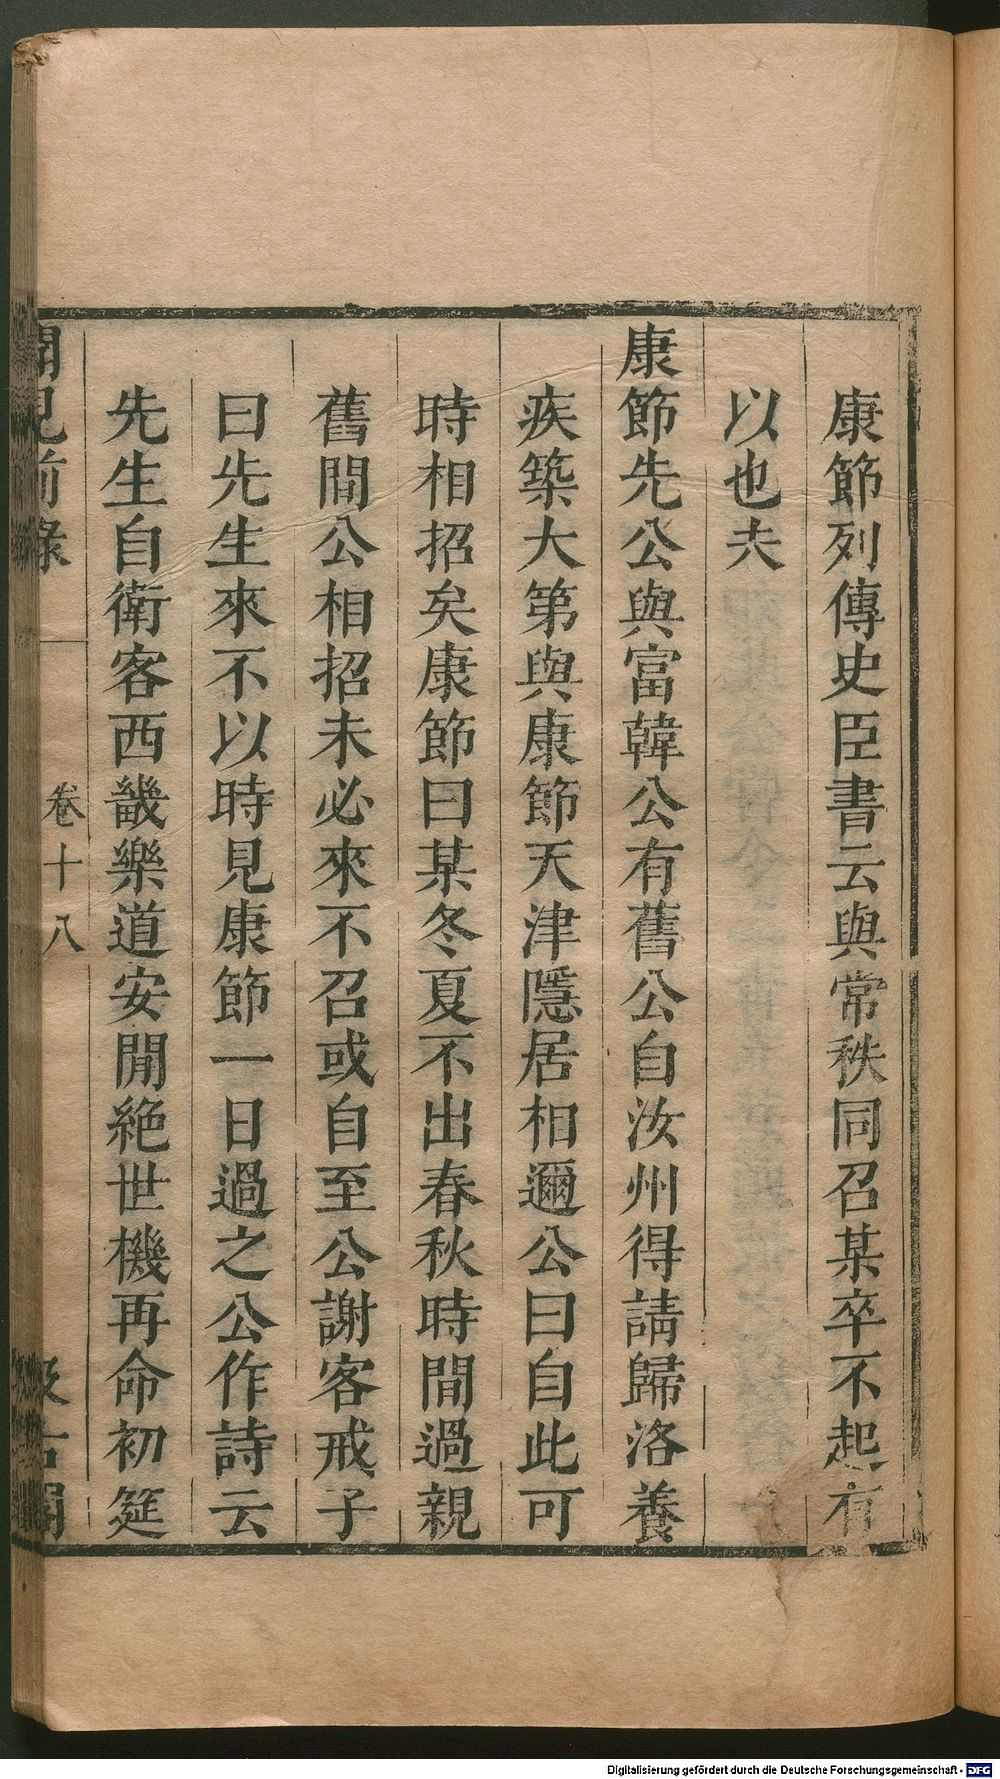 康節列傳史臣書云與常秩同召某卒不起有
以也夫
康節先公與富韓公有舊公自汝州得請歸洛養
疾築大第與康節天津隱居相邇公曰自此可
時相招矣康節曰某冬夏不出春秋時間過親
舊間公相招未必來不召或自至公謝客戒子
曰先生來不以時見康節一日過之公作詩云
先生自衛客西畿樂道安閒絶世機再命初筵
聞見前錄
卷十八
汲古閣
Digitalisierung gefördert durch die Deutsche Forschungsgemeinschaft - DFG